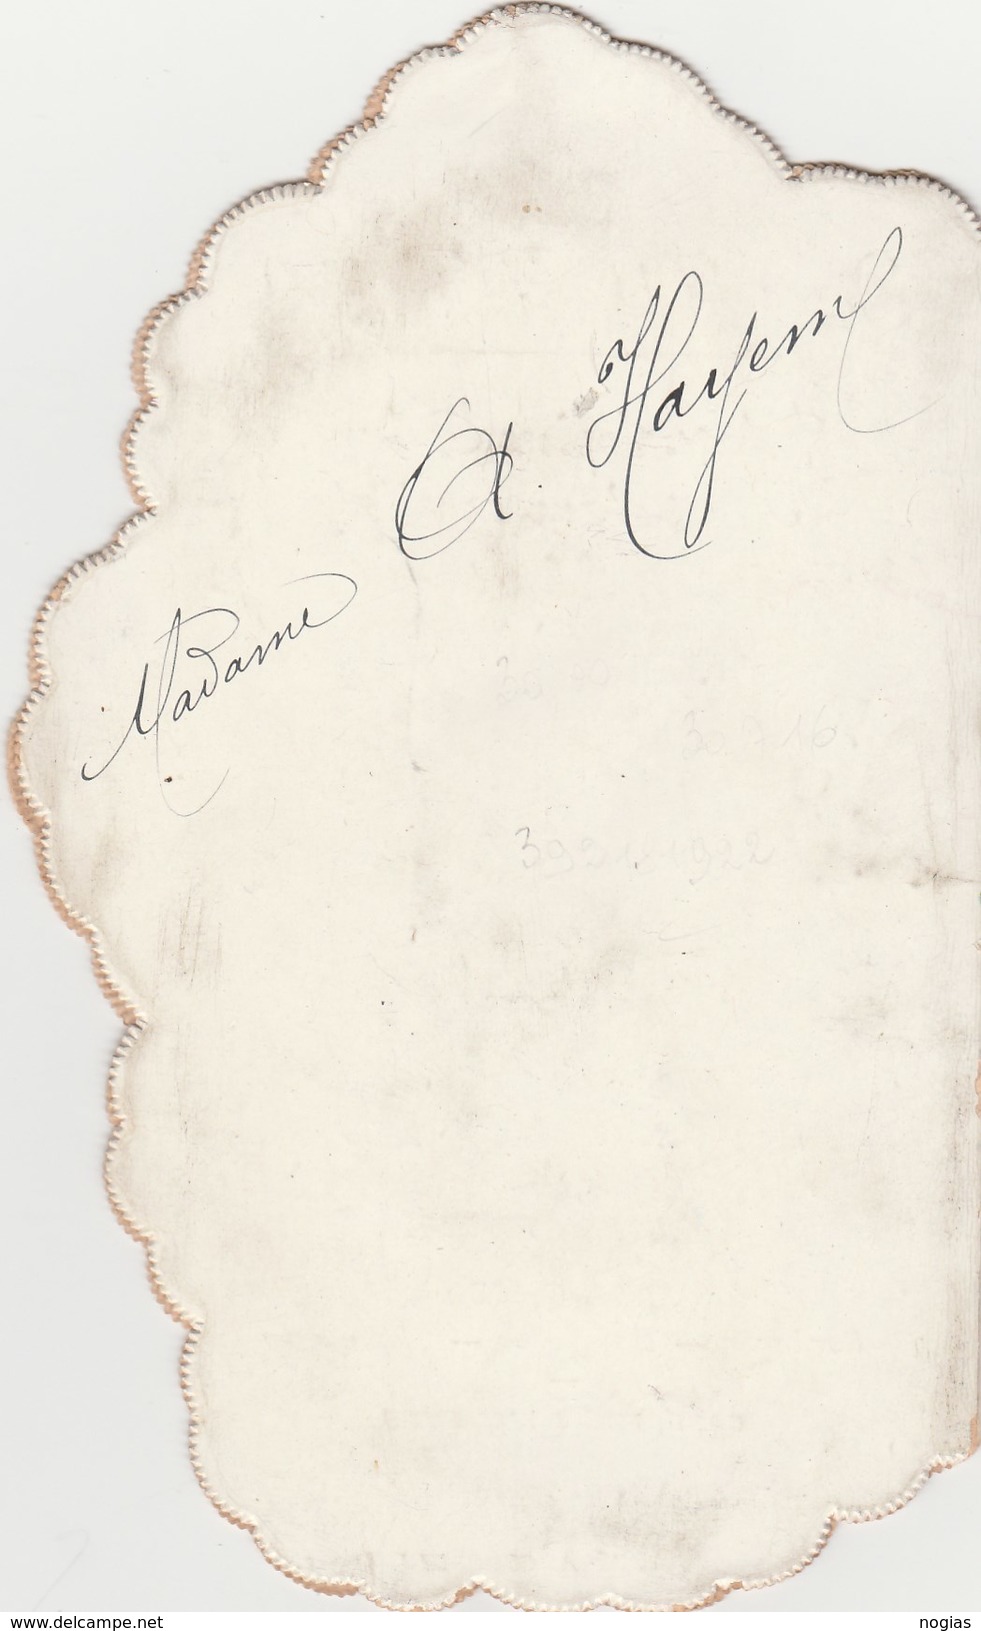 Madame A. Hayem
3921.1922
www.delcampe.net
nogias